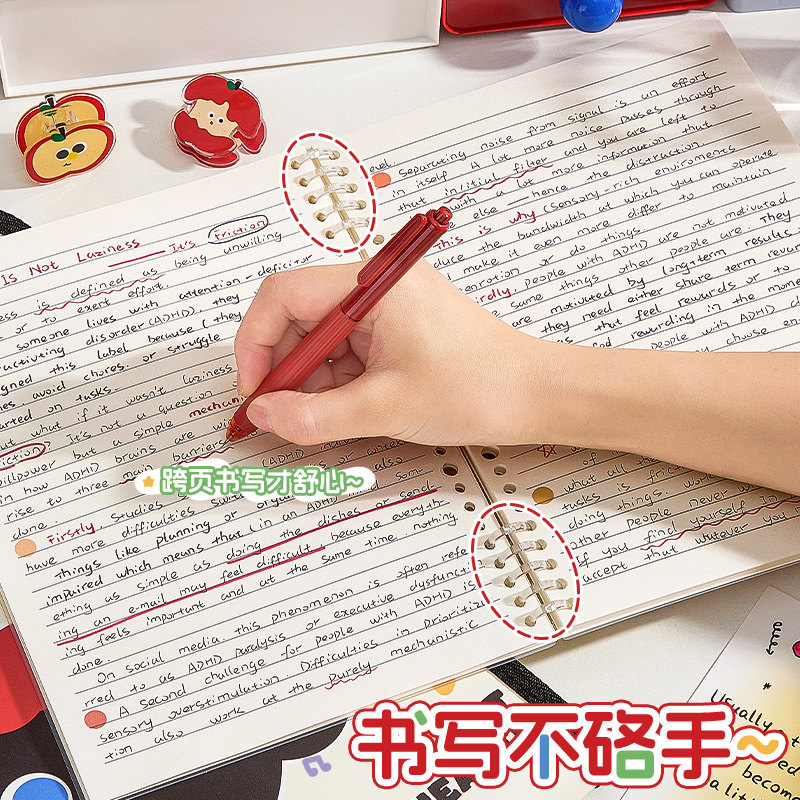 Is Not Laziness — It's Friction
ess is defined as being unwilling
or to exert effort.
someone lives with attention-deficitor
activating disorder (ADHD), they
gned this label because (they
es avoid chores, or struggle
arted on tasks.
ut what if it wasn't laziness
friction? It's not a question
willpower but a simple mechan
n how ADHD brains are wi
rise to three main barriers
done.
Firstly, studies
have more difficulties swit also
things like planning or orga som-
impaired which means that (in an ADHD
ething as simple as doing the dishes or send-
ing an e-mail may feel difficult because everyth-
ing feels important and at the same time nothing
done.
On social media, this phenomenon is often refe
rred to as ADHD paralysis or executive dysfunction
A second challenge for people with ADHD is
sensory overstimulation. Difficulties in prioritizin
tion also work at the purely mechanistic
level.
Separating noise from signal is an effort
in itself. A lot more noise passes through
that initial filter and you are left to
with a lot more information that
else — hence the distraction.
this is why (sensory-rich enviroments
duce the bandwidth at which you can operate
make it even more differ to maintain
eneration or do things.
irdly, people with ADHD are not motivated
same things other people are. They
are motivated by long-term results
they need either share term rewar
as that feel rewards or to
od rewarding in the momen
people with ADHD d
choose en
of
what all tha
tasks is frictio
doing things work
other people never w
If you find yourself in
accept that watever you
跨页书写才舒心~
书写不硌手~
Usually, t
become
a litt